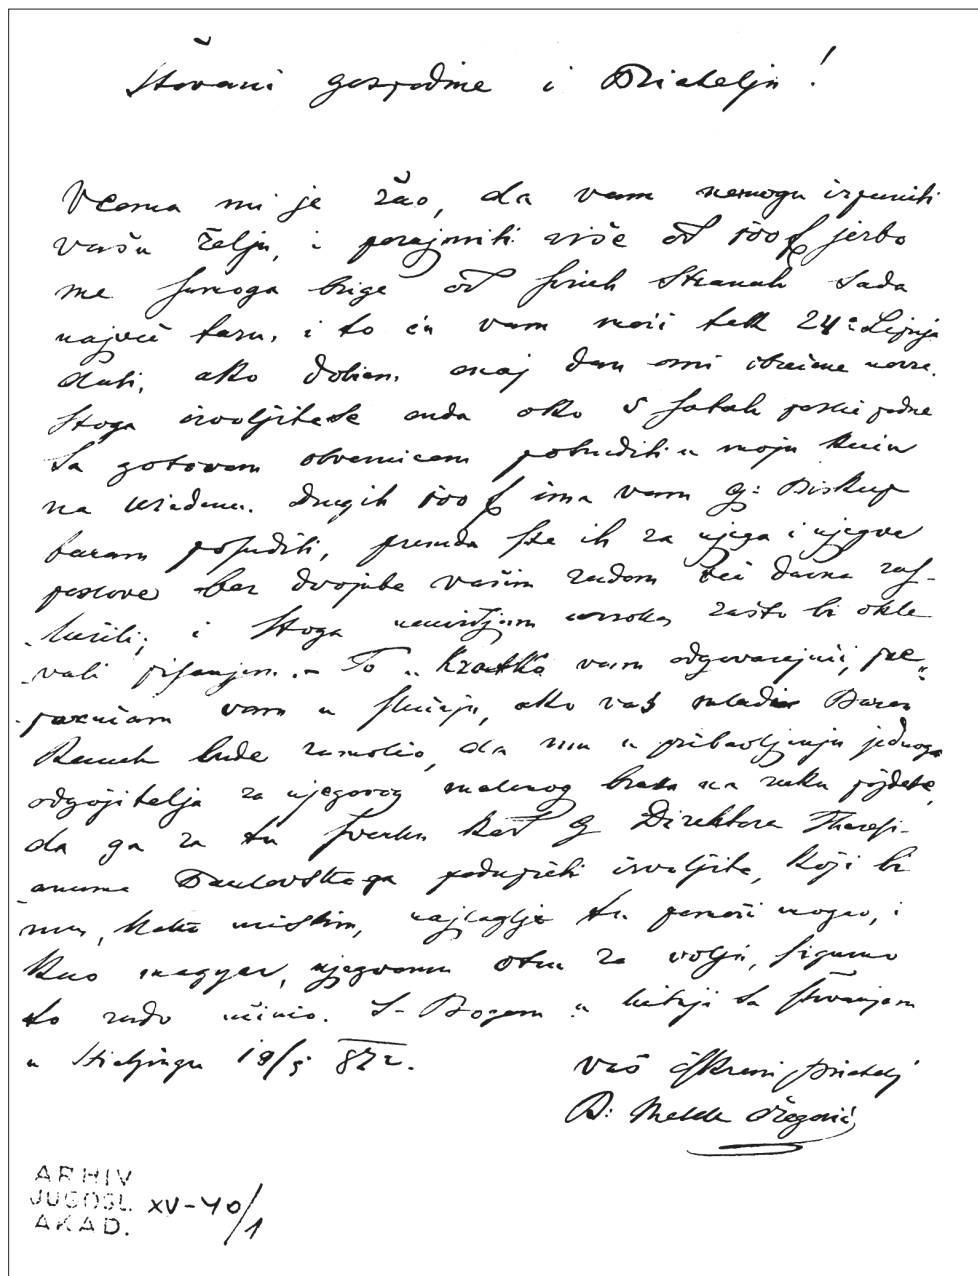 Štovani gospodine i Priatelju!
Veoma mi je žao, da vam nemogu izpuniti
vašu želju, i pozajmiti više od 500 f jerbo
me mnoga brige od sviuh stranah sada
najveć taru, i to ću vam moći tek 24 Lipnja
dati, ako dobiem onaj dan mi obećane novce.
Stoga izvoljite se onda oko 5 satah poslie podne
sa gotovom obveznicom potruditi u moju kuću
na Wiedenu. Drugih 500 f ima vam g: Biskup
barem posuditi, premda ste ih za njega i njegove
poslove bez dvojbe vašim radom već davna zas-
lužili; i stoga nevidjam uzroka, zašto bi okle
vali pisanjem. – To u kratko vam odgovarajući, pre„
„poručam vam u slučaju, ako vas mladi Baron
Rauch bude zamolio, da mu u pribavljenju jednoga
odgojitelja za njegovog malenog brata na ruku pojdete,
da ga za tu svrhu kod g Direktora Theresi-
anuma Pavlovskoga poduprieti izvoljite, koji bi
mu, kako mislim, najlaglje tu pomoći mogao, i
kao magyar, njegovomu otcu za volju, sigurno
to rado učinio. S- Bogom u hitnji sa štovanjem
u Hietzingu 19/5 872.
vaš iskreni priatelj
B: Metell Ožegović
ARHIV
JUGOSL. XV-40/1
AKAD.